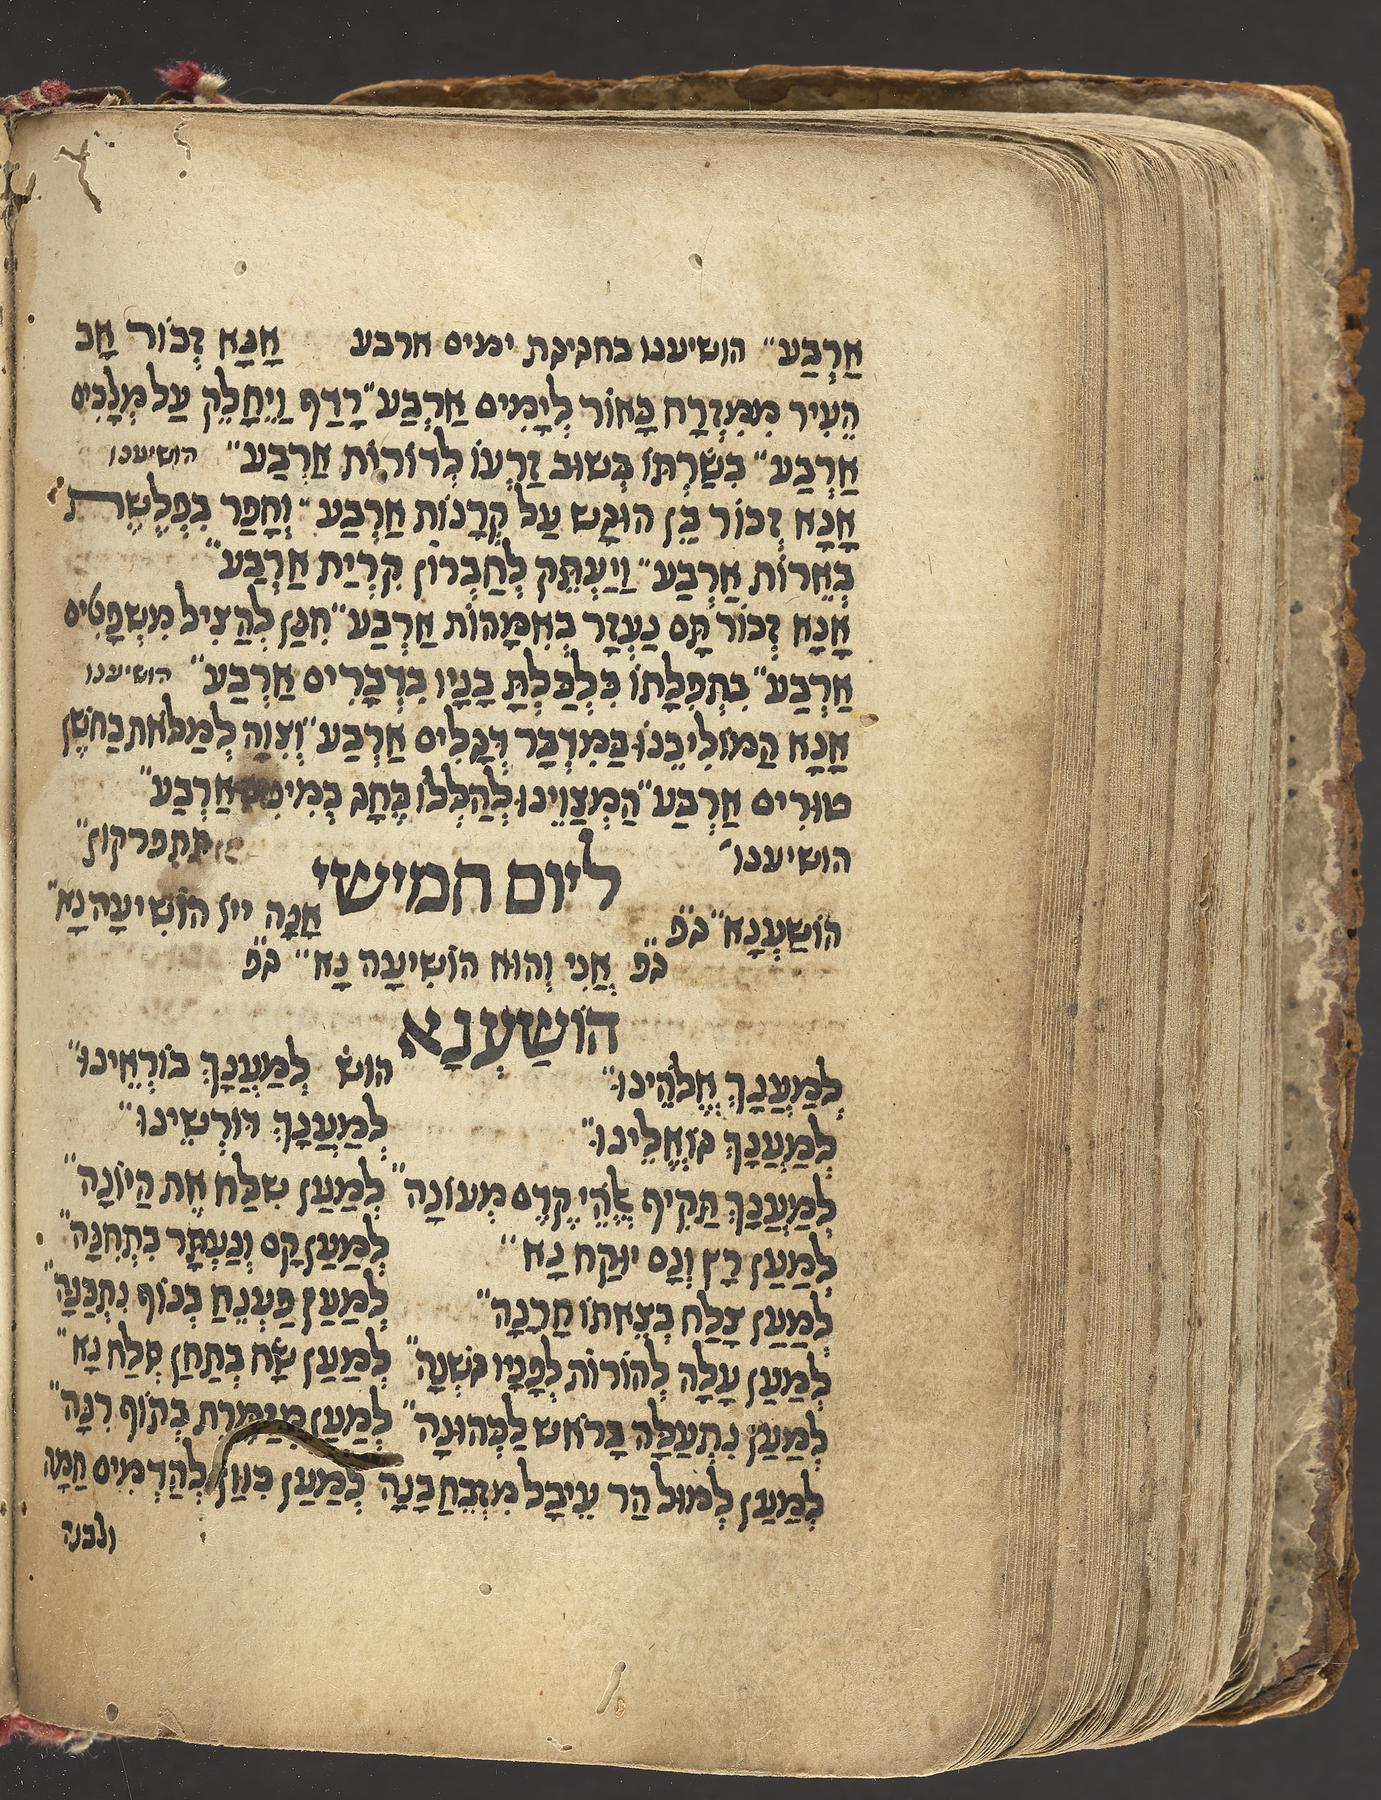 אַרְבַּע״ הושיענו בחגיגת ימים ארבע אָנָּא זְכוֹר אָב
הֵעִיר מִמִּזְרָח כָּאוֹר לְיָמִים אַרְבַּע״ רָדַף וַיֵּחָלֵק עַל מְלָכִים
אַרְבַּע״ בִּשַּׂרְתּוֹ בְּשׁוּב זַרְעוֹ לְדוֹרוֹת אַרְבַּע״ הושיענו
אָנָּא זְכוֹר בֵּן הוּגַשׁ עַל קְרָנוֹת אַרְבַּע״ וְחָפַר בִּפְלֶשֶׁת
בְּאֵרוֹת אַרְבַּע״ וַיַּעְתֵּק לְחֶבְרוֹן קִרְיַת אַרְבַּע״
אָנָּא זְכוֹר תָּם נֶעְזַר בְּאִמָּהוֹת אַרְבַּע״ חִנֵּן לְהַצִּיל מִשְּׁפָטִים
אַרְבַּע״ בִּתְפִלָּתוֹ כִּלְכַּלְתָּ בָּנָיו בִּדְבָרִים אַרְבַּע״ הושיענו
אָנָּא הַמּוֹלִיכֵנוּ בַּמִּדְבָּר דְּגָלִים אַרְבַּע״ וְצִוָּה לְמַלֹּאת בַּחֹשֶׁן
טוּרִים אַרְבַּע״ הַמְצַוֵּינוּ לְהַלְלוֹ בֶּחָג בְּמִינִים אַרְבַּע״
הושיענו״ תתפרקון״
ליום חמישי
הוֹשַׁעְנָא״ ג״פ אָנָּה ייי הוֹשִׁיעָה נָּא״
ג״פ אֲנִי וְהוּא הוֹשִׁיעָה נָּא״ ג״פ
הוֹשַׁעְנָא
לְמַעֲנָךְ אֱלֹהֵינוּ״ הוש׳ לְמַעֲנָךְ בּוֹרְאֵינוּ״
לְמַעֲנָךְ גּוֹאֲלֵינוּ״ לְמַעֲנָךְ דּוֹרְשֵׁינוּ״
לְמַעֲנָךְ תַּקִּיף אֱלֹהֵי קֶדֶם מְעוֹנָה״ לְמַעַן שִׁלַּח אֶת הַיּוֹנָה״
לְמַעַן רָץ וְנָם יוּקַּח נָא״ לְמַעַן קָם וְנֶעְתַּר בִּתְחִנָּה״
לְמַעַן צָלַח בְּצֵאתוֹ חָרָנָה״ לְמַעַן פַּעְנֵחַ בְּנוֹף נִתְכַּנָּה״
לְמַעַן עָלָה לְהוֹרוֹת לְפָנָיו גֹּשְׁנָה״ לְמַעַן שָׂח בְּתַחַן סְלַח נָא״
לְמַעַן נִתְעַלָּה בְּרֹאשׁ לַכְּהוּנָּה״ לְמַעַן מְזַמֶּרֶת בְּתוֹף רִנָּה״
לְמַעַן לְמוּל הַר עֵיבָל מִזְבֵּחַ בָּנָה לְמַעַן כִּוֵּון לְהַדְמִים חַמָּה
ולבנה